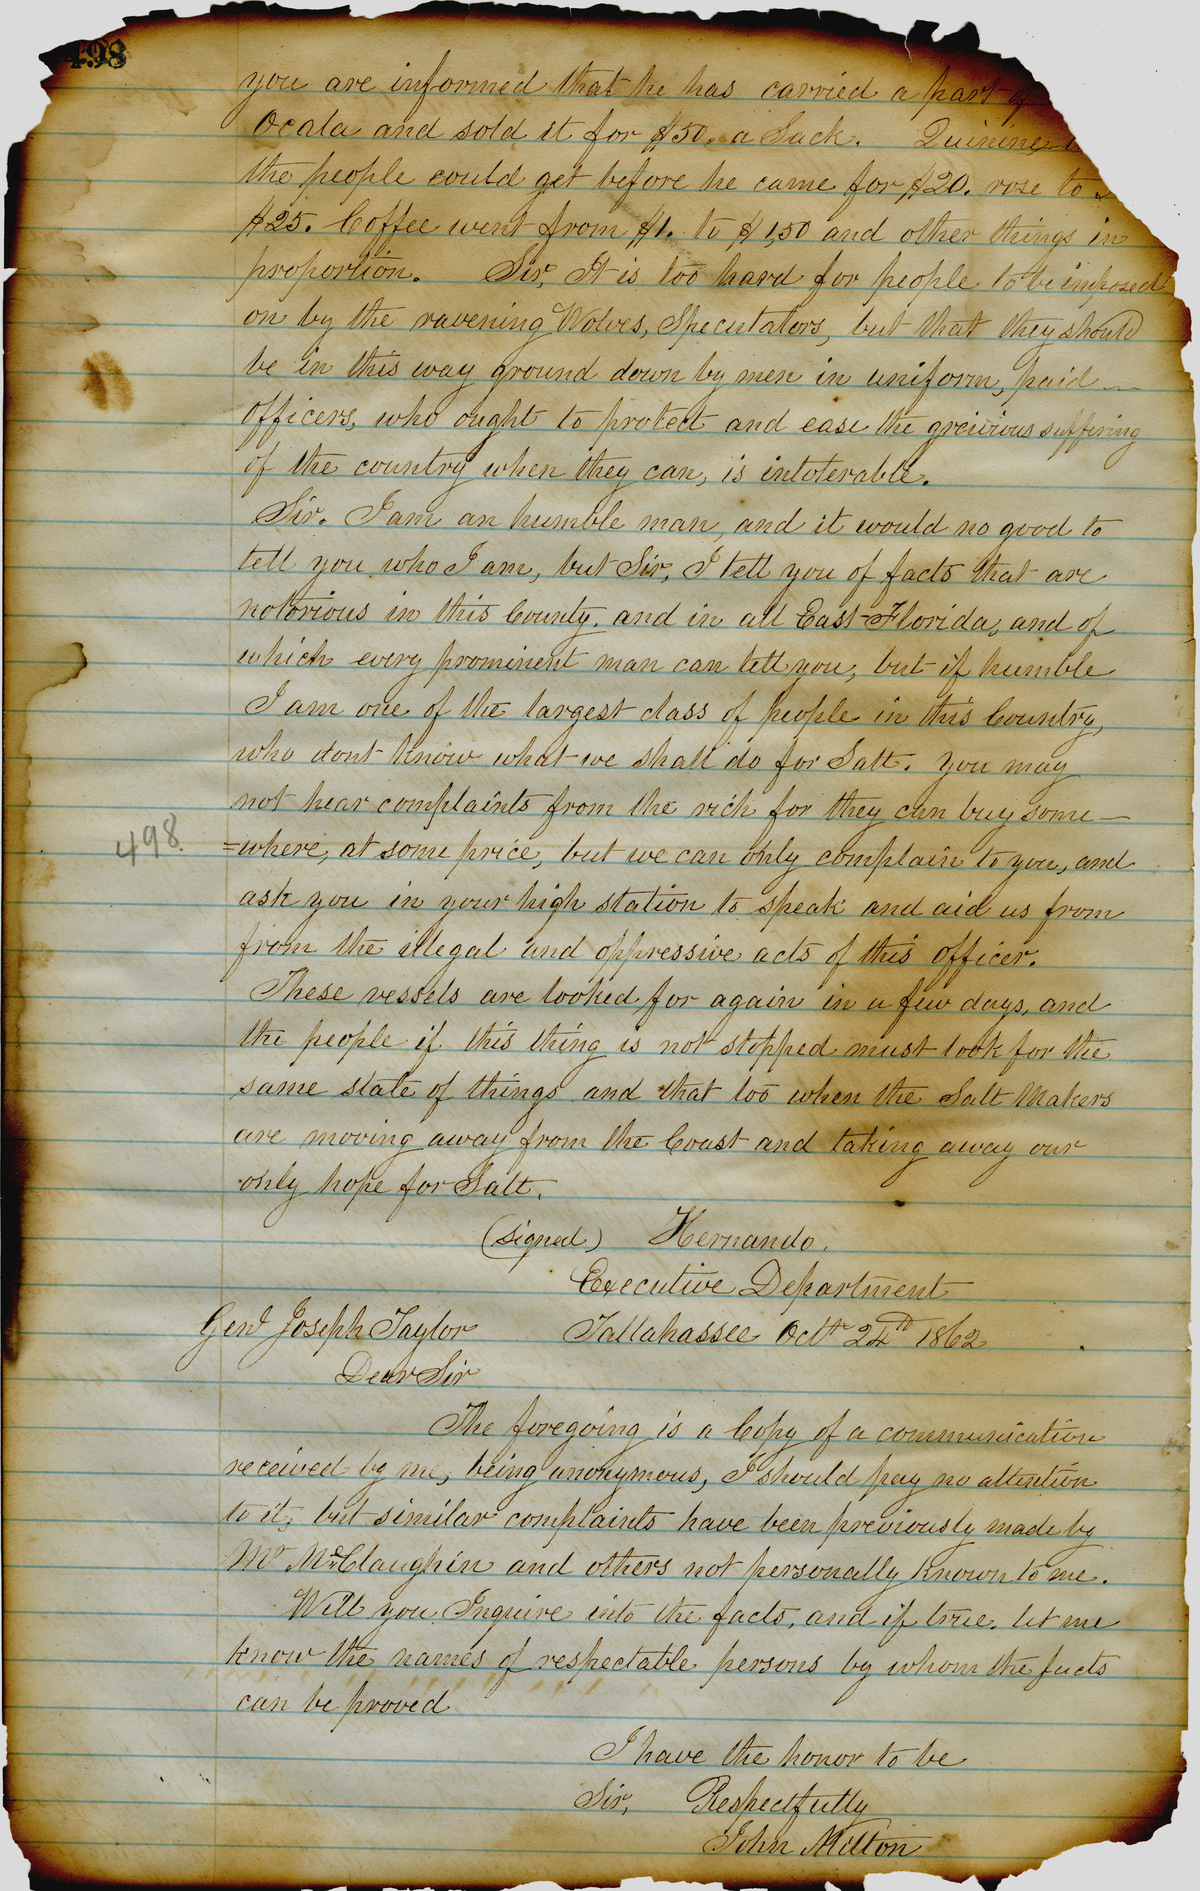 498
you are informed that he has carried a part of
Ocala and sold it for $50. a Sack. Quinine
the people could get before he came for $20. rose to
$25. Coffee went from $1. to $1,50 and other things in
proportion. Sir, It is too hard for people to be imposed
on by the ravening Wolves, Speculators, but that they should
be in this way ground down by men in uniform, paid —
officers, who ought to protect and ease the greivious suffering
of the country when they can, is intolerable.
Sir. I am an humble man, and it would no good to
tell you who I am, but Sir, I tell you of facts that are
notorious in this County, and in all East-Florida, and of
which every prominent man can tell you, but if humble
I am one of the largest class of people in this Country,
who dont know what we shall do for Salt. You may
not hear complaints from the rich for they can buy some—
498.
=where, at some price, but we can only complain to you, and
ask you in your high station to speak and aid us from
from the illegal and oppressive acts of this officer.
These vessels are looked for again in a few days, and
the people if this thing is not stopped must look for the
same state of things and that too when the Salt Makers
are moving away from the Coast and taking away our
only hope for Salt.
(signed) Hernando.
Executive Department
Genl Joseph Taylor Tallahassee Octr 24th 1862
Dear Sir
The foregoing is a Copy of a communication
received by me, being anonymous, I should pay no attention
to it, but similar complaints have been previously made by
Mr McClaughin and others not personally known to me.
Will you Inquire into the facts, and if true, let me
know the names of respectable persons by whom the facts
can be proved
I have the honor to be
Sir, Respectfully
John Milton